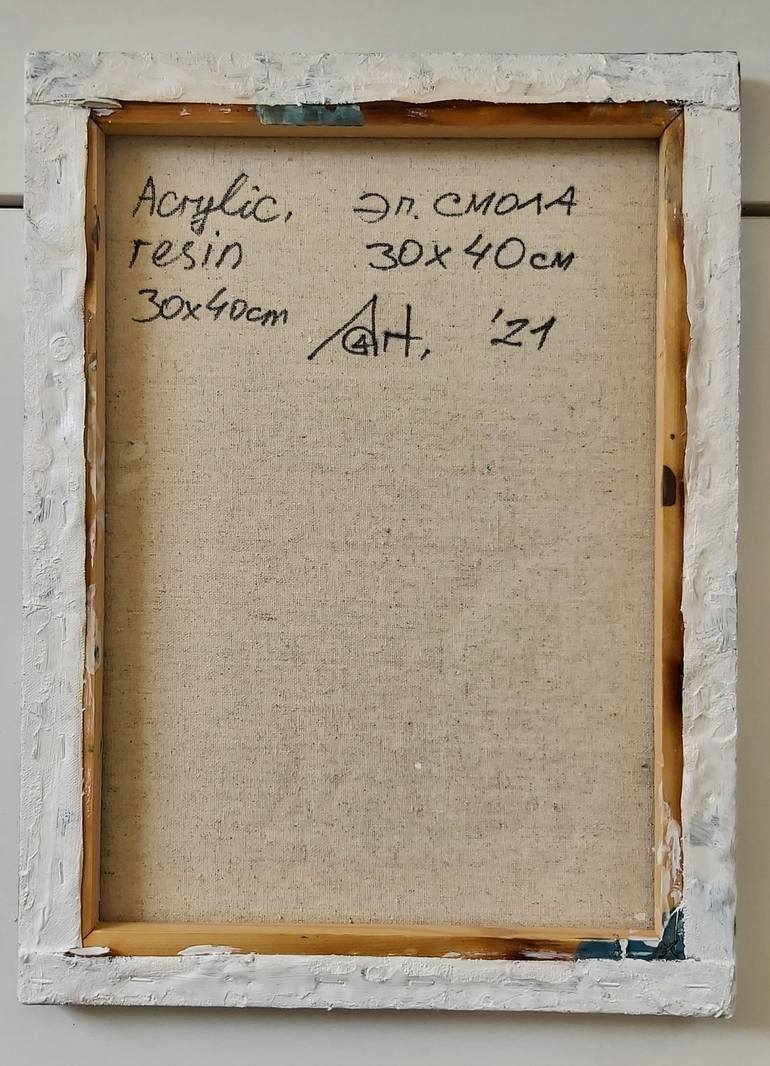 Acrylic, эп. СМОЛА
resin 30x40 см
30x40cm
Art, '21